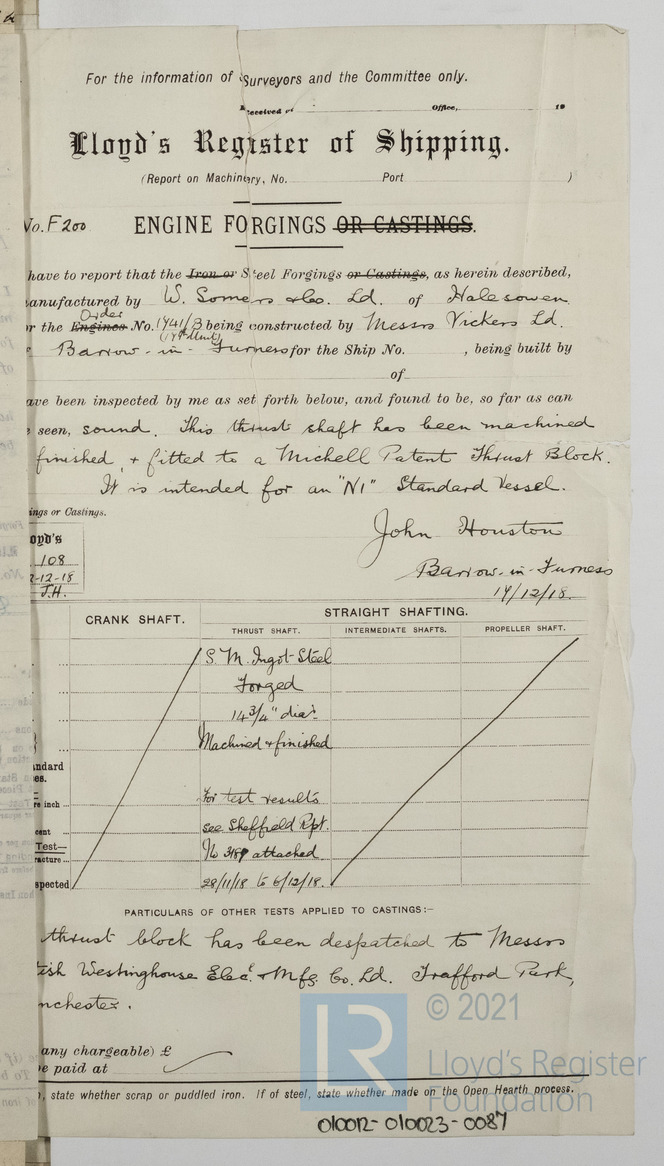 For the information of Surveyors and the Committee only.
Received at Office, 19
Lloyd's Register of Shipping.
(Report on Machinery, No. Port )
No. F200 ENGINE FORGINGS OR CASTINGS.
have to report that the Iron or Steel Forgings or Castings, as herein described,
anufactured by W. Somers & Co. Ld. of Halesowen
Order
r the Engines No. 1941/B being constructed by Messrs Vickers Ld.
Barrow-in-Furness for the Ship No. , being built by
of
ave been inspected by me as set forth below, and found to be, so far as can
seen, sound. This thrust shaft has been machined
finished, & fitted to a Michell Patent Thrust Block.
It is intended for an "N1" Standard Vessel.
ings or Castings.
John Houston
oyd's
108
Barrow-in-Furness
2-12-18
J.H.
17/12/18.
CRANK SHAFT. STRAIGHT SHAFTING.
THRUST SHAFT. INTERMEDIATE SHAFTS. PROPELLER SHAFT.
S. M. Ingot Steel
Forged
14 3/4" diar.
Machined & finished
andard
es.
re inch For test results
cent see Sheffield Rpt.
Test— No attached
racture
spected 28/11/18 to 6/12/18.
PARTICULARS OF OTHER TESTS APPLIED TO CASTINGS:-
thrust block has been despatched to Messrs
tish Westinghouse Elec. & Mfg. Co. Ld. Trafford Park,
nchester.
any chargeable) £
e paid at
, state whether scrap or puddled iron. If of steel, state whether made on the Open Hearth process.
© 2021
LR
Lloyd's Register
Foundation
010012-010023-0087